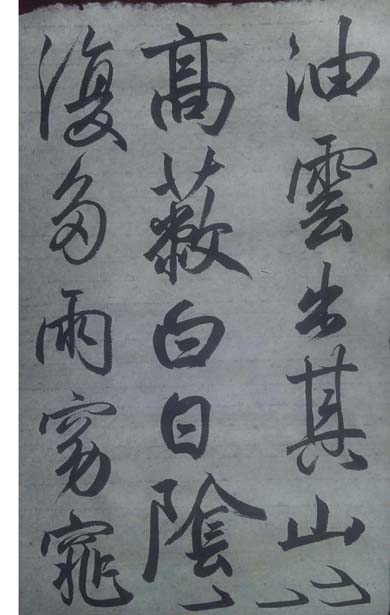 油雲出其山
高蔽白日陰
復多雨窈窕